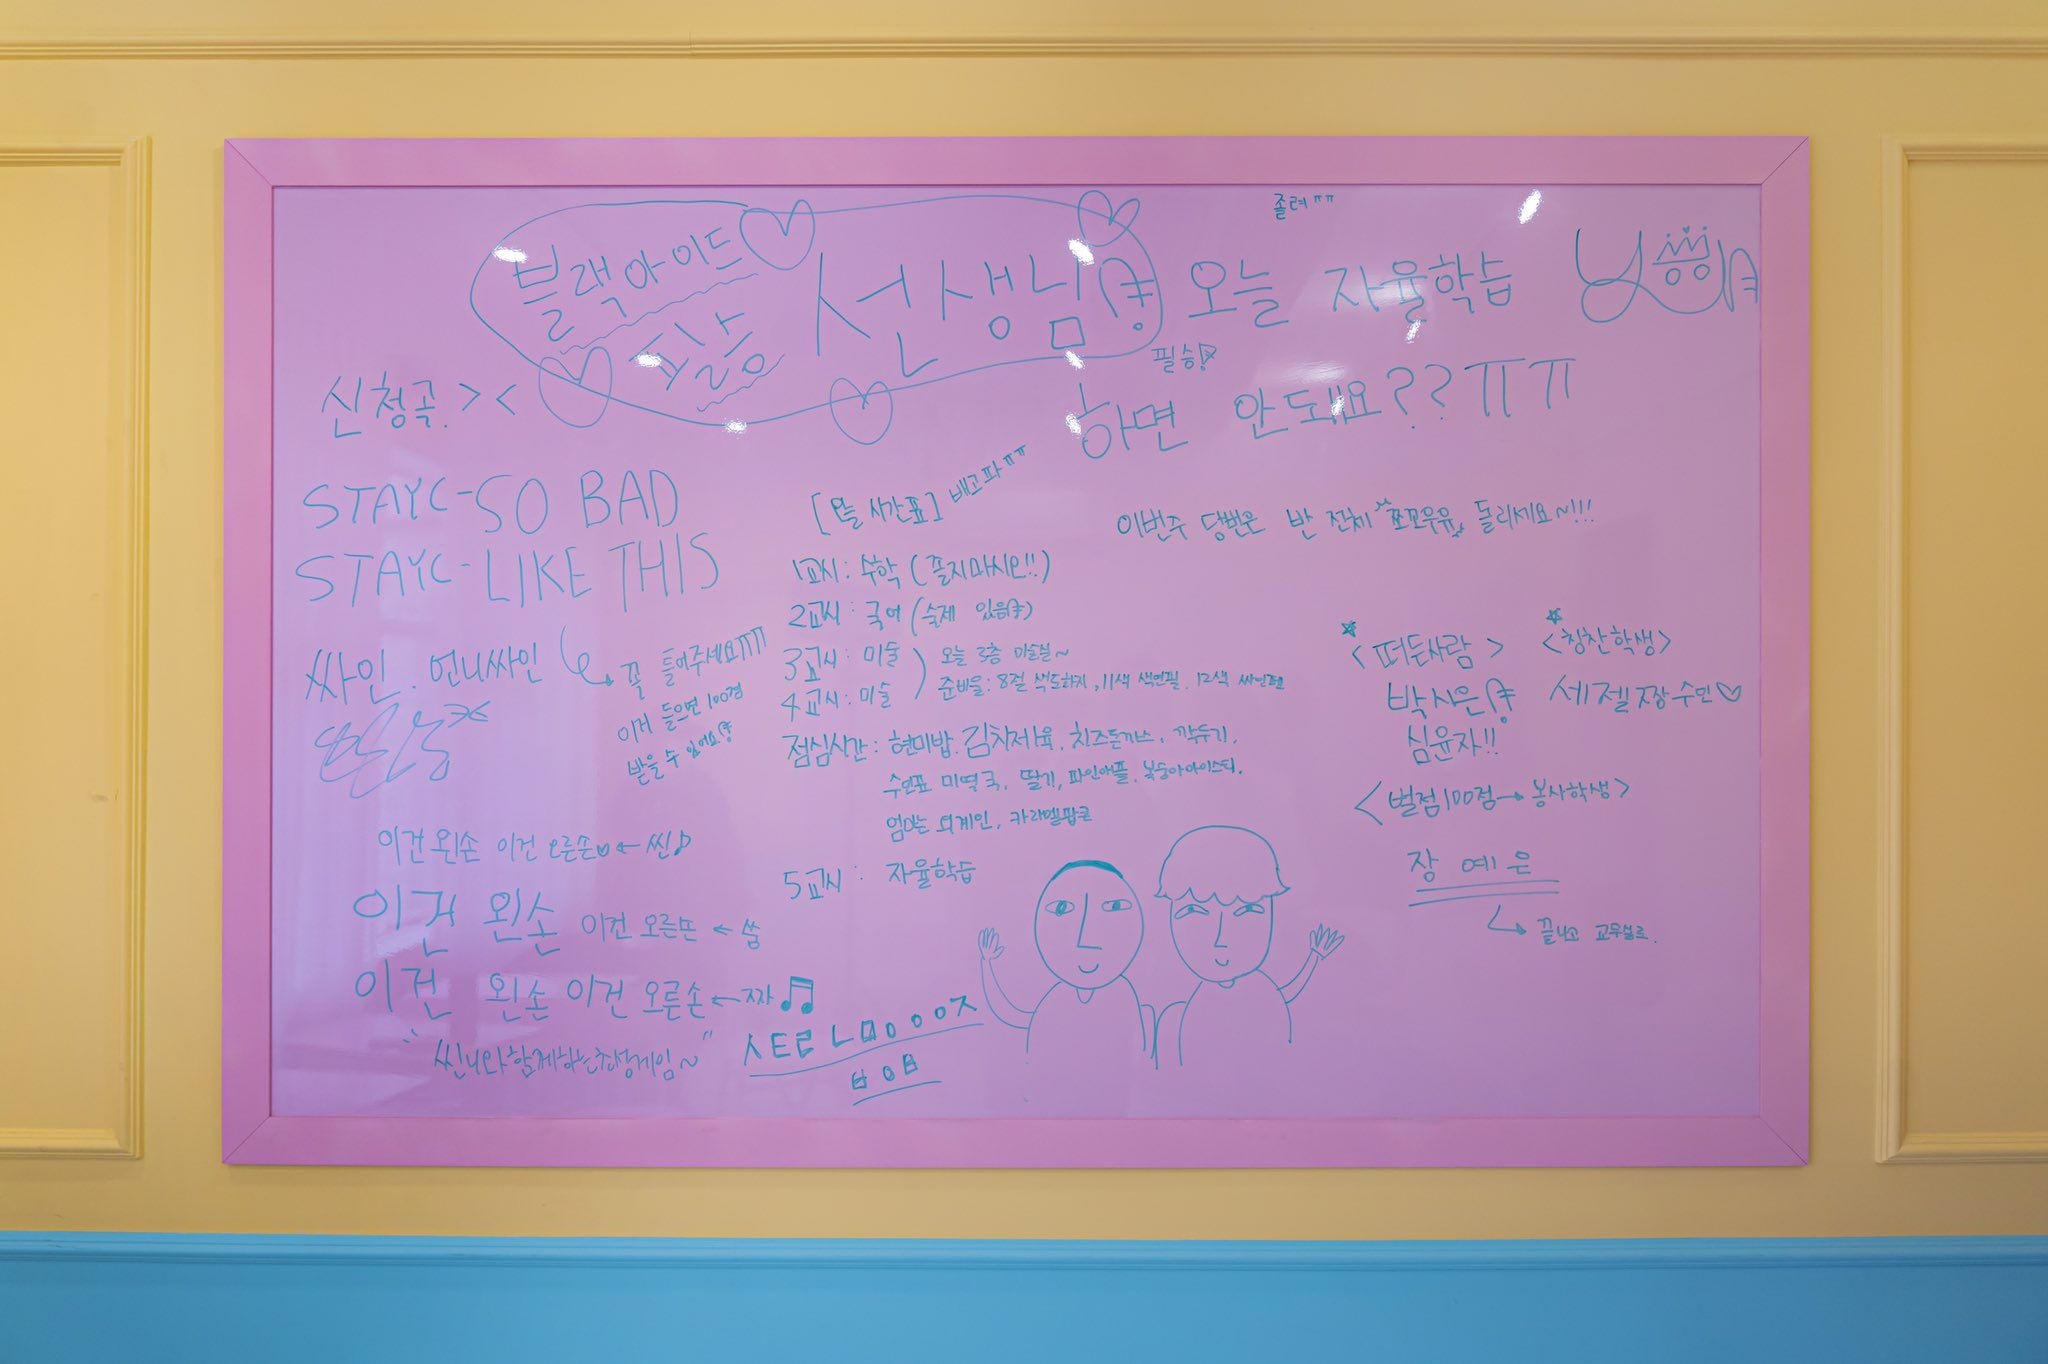 졸려ㅠㅠ
블랙아이드
필승
선생님
오늘 자율학습
하면 안돼요??ㅠㅠ
필승!
신청곡. ><
STAYC-SO BAD
STAYC-LIKE THIS
싸인. 언니싸인
꼭 들어주세요ㅠㅠ
이거 들으면 100점
받을 수 있어요!
[오늘 시간표] 배고파ㅠㅠ
1교시: 수학 (졸지마시오!!)
2교시: 국어 (숙제 있음!)
3교시: 미술
4교시: 미술
오늘 3층 미술실~
준비물: 8절 색도화지, 11색 색연필. 12색 싸인펜
점심시간: 현미밥. 김치제육. 치즈돈까스. 깍두기.
수연표 미역국. 딸기, 파인애플. 복숭아아이스티.
엄마는 외계인. 카라멜팝콘
5교시: 자율학습
이번주 당번은 반 전체 쪼꼬우유 돌리세요~!!!
<떠든사람>
박시은!
심윤자!!
<칭찬학생>
세젤짱 수민♡
<벌점100점→봉사학생>
장 예 은
끝나고 교무실로.
이건 왼손 이건 오른손♡←씬♪
이건 왼손 이건 오른손←쑴
이건 왼손 이건 오른손←짜♫
"씬나와 함께하는 초성게임~"
ㅅㅌㄹ ㄴㅁㅇㅇㅇㅈ
ㅂㅇㅂ